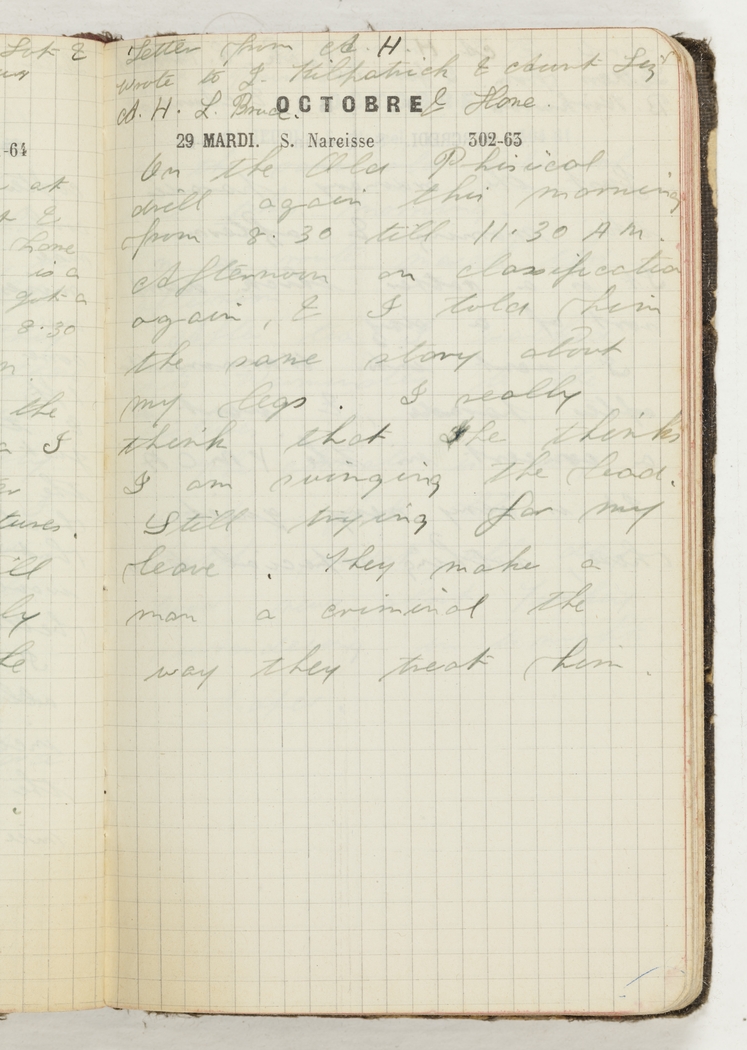 Letter from A. H
wrote to J. Kilpatrick & Aunt Liz
A. H. L. Bruce. & Home.
OCTOBRE
29 MARDI. S. Narcisse 302-63
On the Old Phisical
drill again this morning
from 8.30 till 11.30 A m.
Afternoon on classification
again, & I told him
the same story about
my legs. I really
think that he thinks
I am swinging the lead.
Still trying for my
leave. They make a
man a criminal the
way they treat him.
-64
at
&
Home
is a
got a
8.30
the
I
tures.
ill
ly